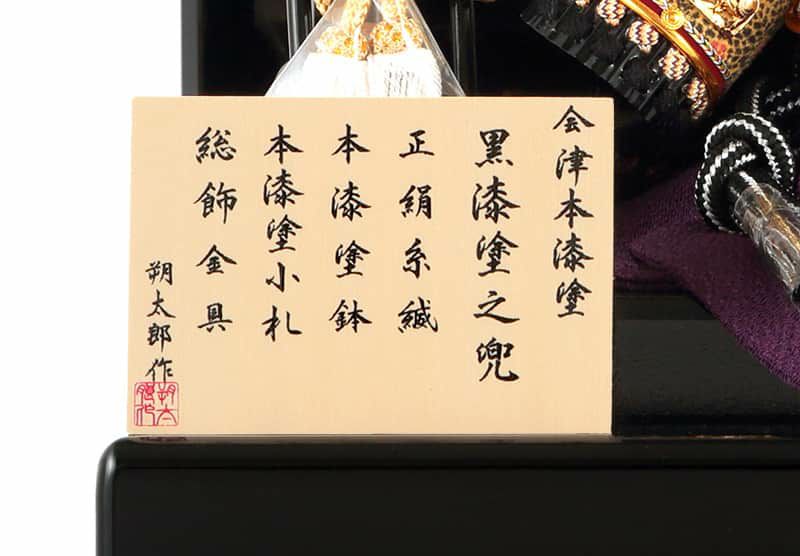 会津本漆塗
黒漆塗之兜
正絹糸縅
本漆塗鉢
本漆塗小札
総飾金具
朔太郎作